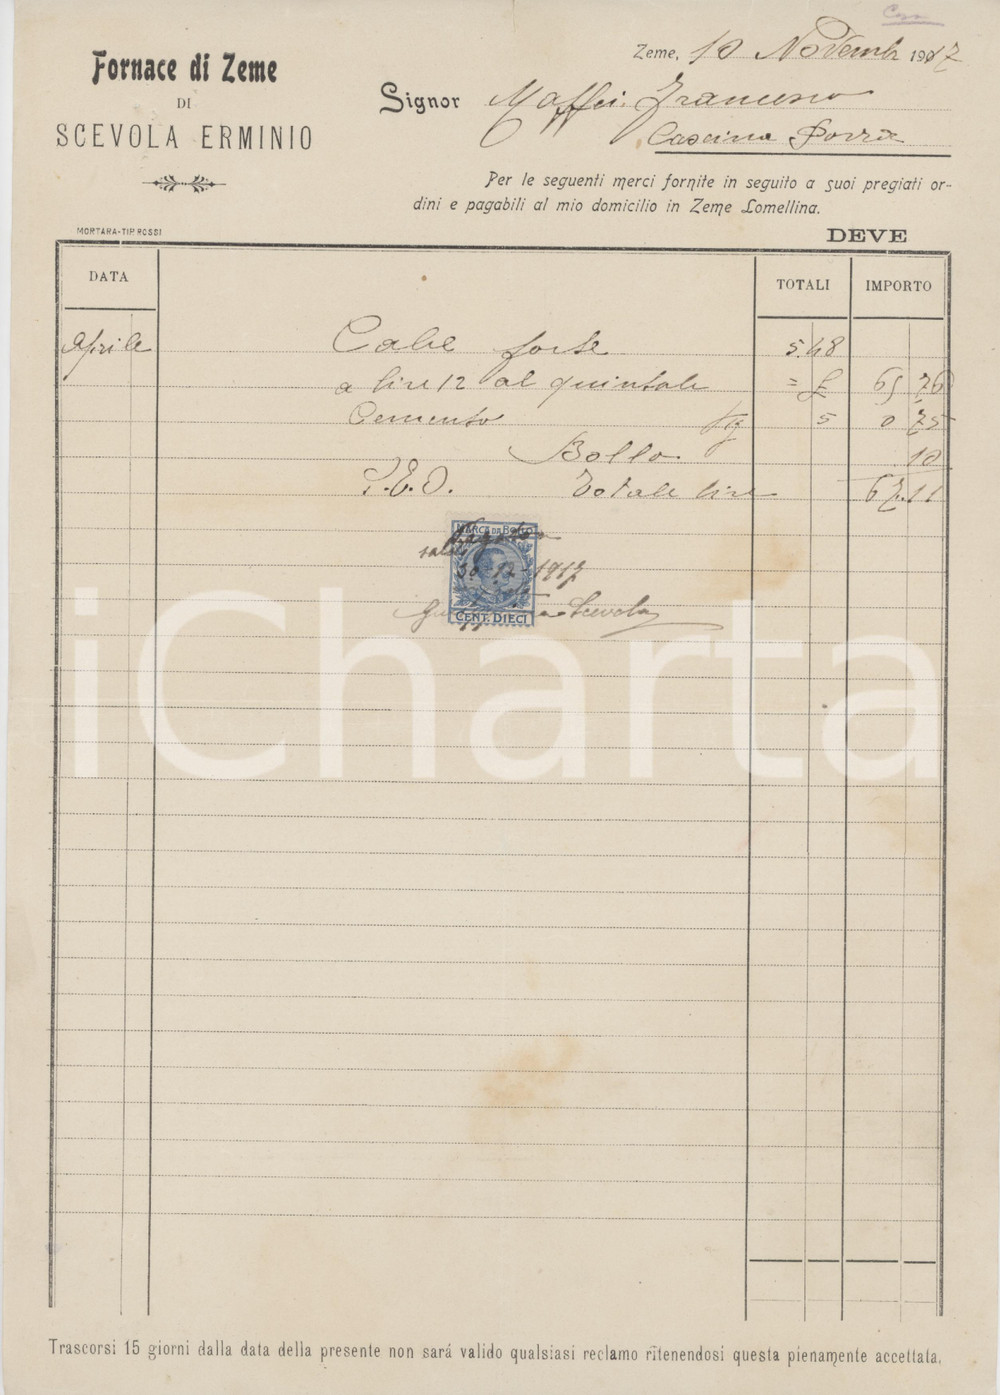 Fornace di Zeme
DI
SCEVOLA ERMINIO
Zeme, 10 Novembr 1917
Signor Maffei Francesco
Cascina
Per le seguenti merci fornite in seguito a suoi pregiati or-
dini e pagabili al mio domicilio in Zeme Lomellina.
MORTARA-TIP. ROSSI
DEVE
DATA TOTALI IMPORTO
Aprile Calce forte 5.48
a lire 12 al quintale = £ 65 76
Cemento Kg 5 0 75
Bollo 10
S.E.O. Totale lire 67.11
MARCA DA BOLLO
30-12-1917
Scevola
CENT. DIECI
iCharta
Trascorsi 15 giorni dalla data della presente non sará valido qualsiasi reclamo ritenendosi questa pienamente accettata.